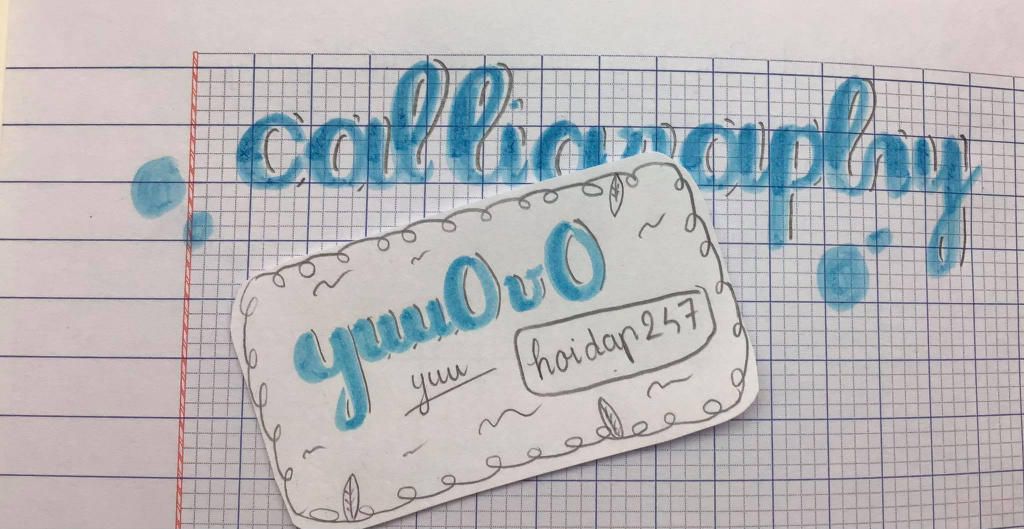 calligraphy
yuuOvO
yuu
hoidap247